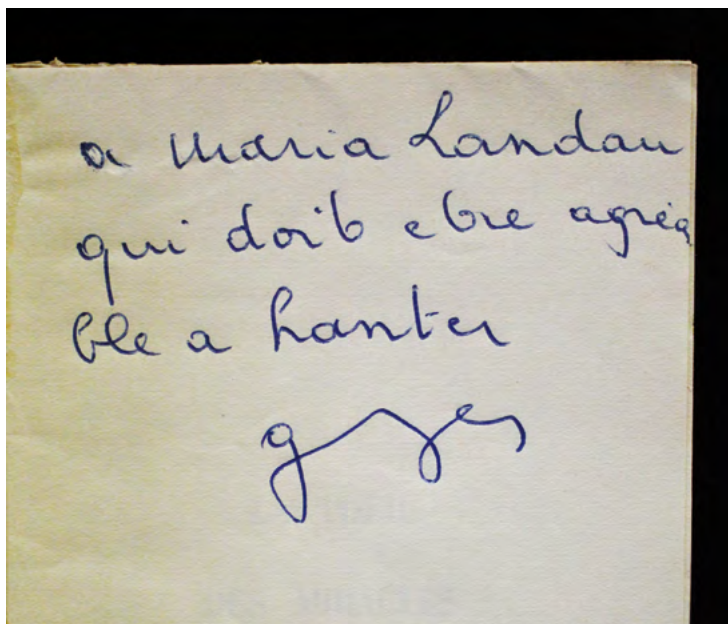 a Maria Landau
qui doit etre agréa
ble a hanter